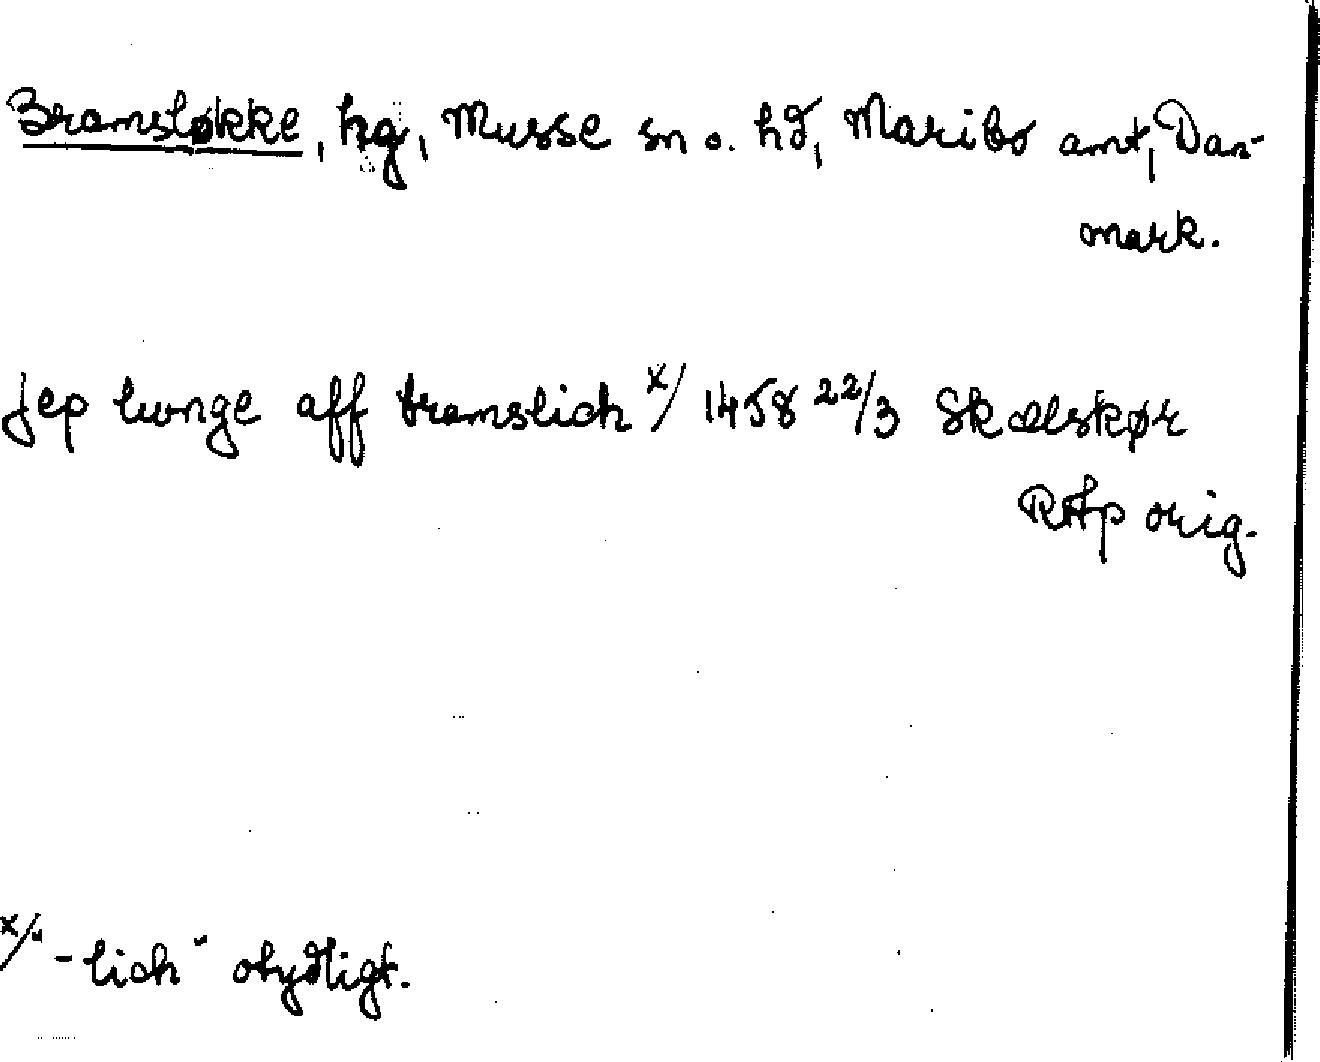 Bramsløkke, hg, Musse sn o. hd, Maribo amt, Dan-
mark.
Jep lunge aff bramslich x/ 1458 22/3 Skælskør
RAp orig.
x/ "-lich" otydligt.